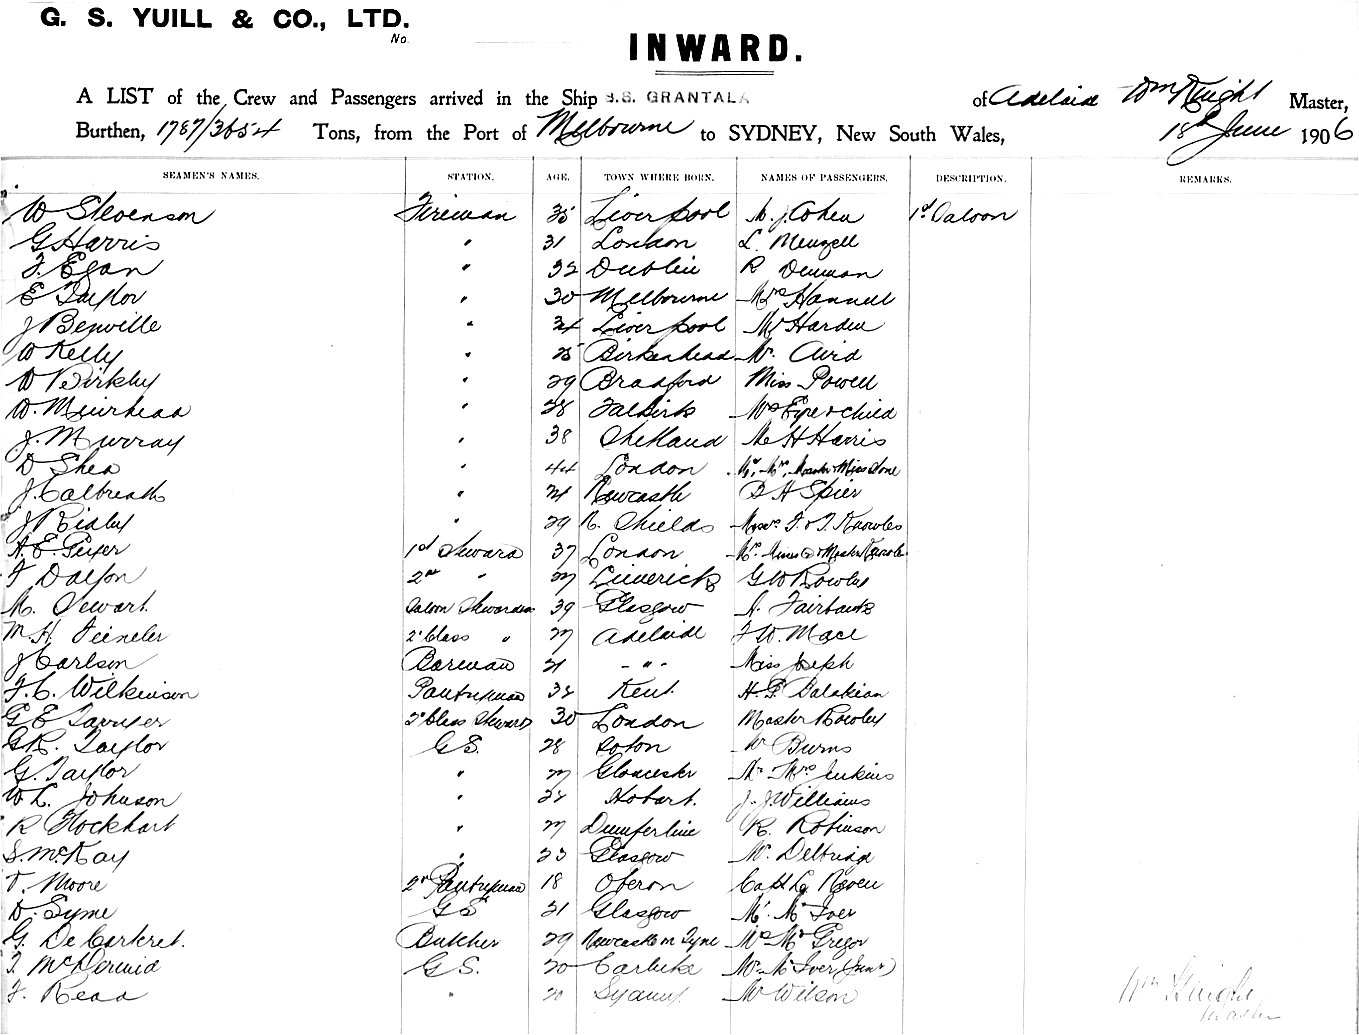 G. S. YUILL & CO., LTD.
No.
INWARD.
A LIST of the Crew and Passengers arrived in the Ship S.S. GRANTALA of Adelaide Wm Knight Master,
Burthen, 1787/3654 Tons, from the Port of Melbourne to SYDNEY, New South Wales, 18th June 1906
SEAMEN'S NAMES. STATION. AGE. TOWN WHERE BORN. NAMES OF PASSENGERS. DESCRIPTION. REMARKS.
W Stevenson Fireman 35 Liverpool M. J. Cohen 1st Saloon
G Harris " 31 London L. Menzell
F. Egan " 32 Dublin R Denman
E Taylor " 30 Melbourne Mrs Hannell
J Benville " 34 Liverpool Mr Harden
W Kelly " 25 Birkenhead Mr. Aird
W Birkby " 29 Bradford Miss Powell
W. Muirhead " 28 Falkirk Mrs Eyre & child
J. Murray " 38 Shetland Mr H Harris
D Shea " 44 London Mr, Mrs, Master & Miss Stone
J. Calbreath " 21 Newcastle B H Spier
J Ridley " 29 N. Shields Messrs F. & J. Knowles
A. E. 1st Steward 37 London
F Dalton 2nd " 27 Limerick G W Rowley
M. Stewart Saloon Stewardess 39 Glasgow A. Fairbank
M. H. 2d Class " 27 Adelaide F W. Mace
J Carlson Barman 21 - " - Miss Joseph
F. C. Wilkinson Pantryman 32 Kent H. P.
G E Sawyer 2d Class Steward 30 London Master Rowley
G R. Taylor G S. 28 Soton Mr Burns
G. Taylor " 27 Gloucester Mr Mrs Jenkins
W L. Johnson " 22 Hobart. J. J Williams
R Stockhart " 27 Dumferline R. Robinson
S. McKay " 23 Glasgow Mr. Delbridg
T. Moore 2nd Pantryman 18 Oberon Capt L Neven
D. Syme G S 21 Glasgow Mr. McIver
G. De Carteret. Butcher 29 Newcastle on Tyne Mrs McGregor
J. McDermid G S. 20 Carluke Mr. McIver (Junr)
J. Read " 20 Sydney. Mr Wilson
Wm Knight
Master